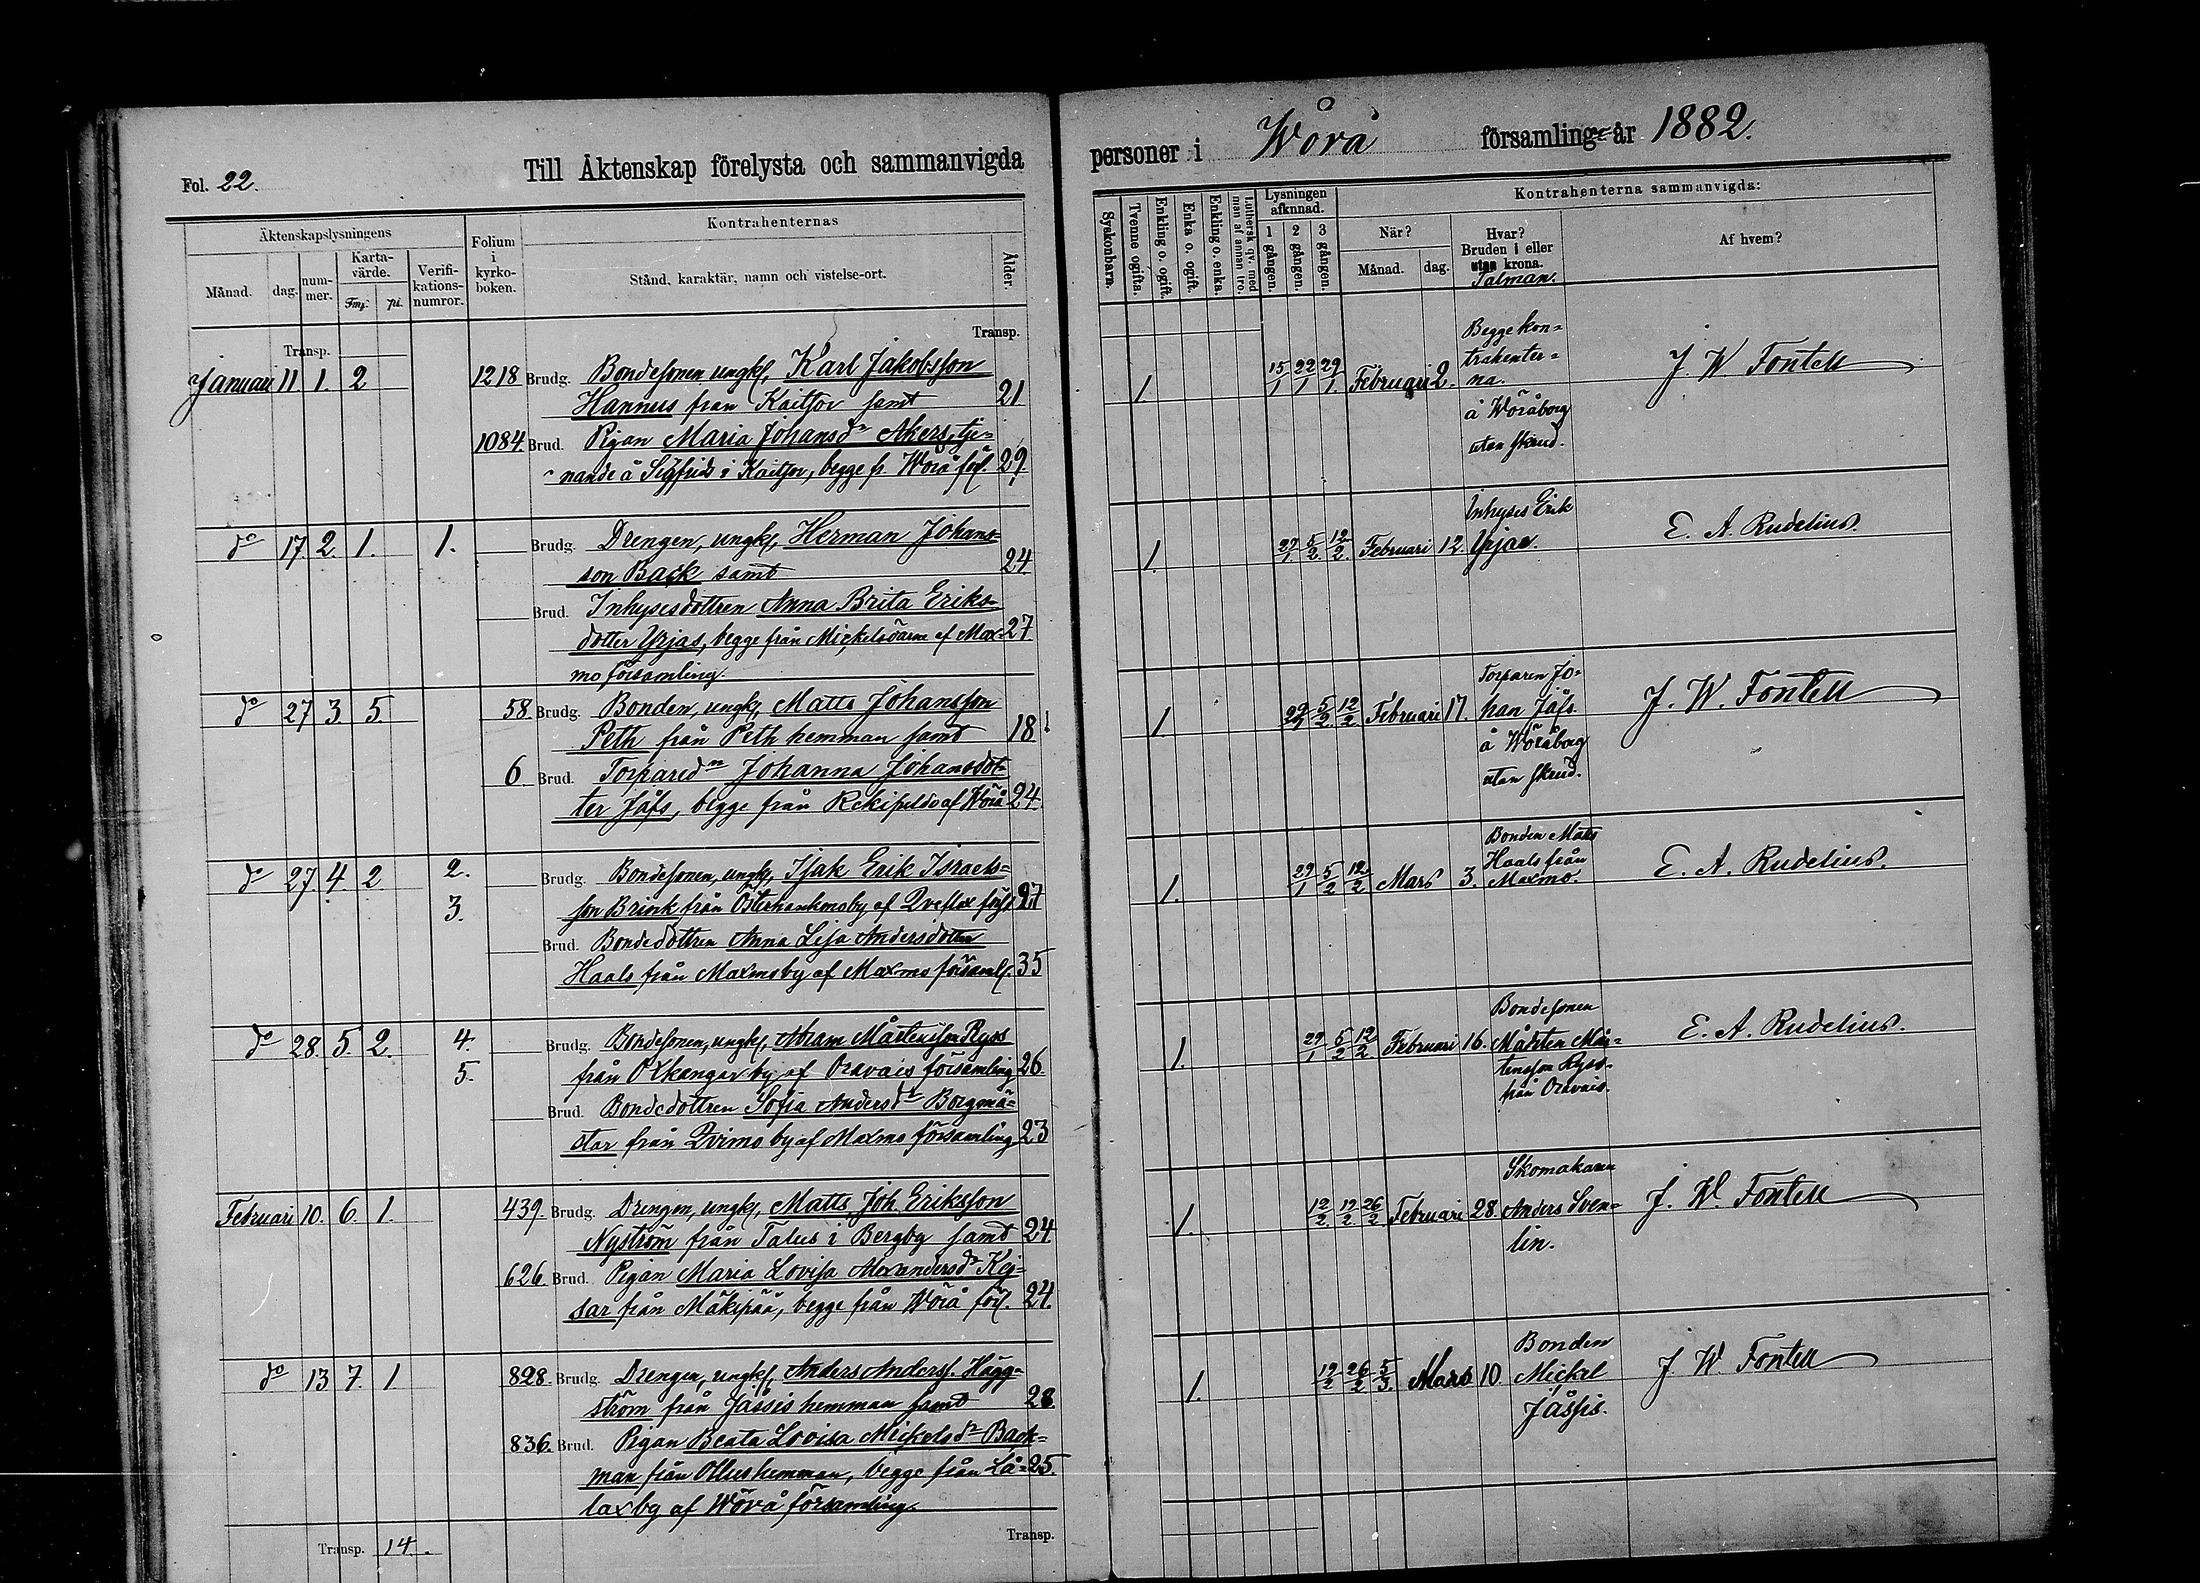 Fol. 22.
Till Äktenskap förelysta och sammanvigda
Äktenskapslysningens
Månad.
dag.
num-
mer.
Karta-
värde.
Fmg.
pi.
Verifi-
kations-
numror.
Folium
i
kyrko-
boken.
Kontrahenternas
Stånd, karaktär, namn och vistelse-ort.
Ålder.
Transp.
Transp.
Januari 11. 1. 2 1218 Brudg. Bondesonen ungk, Karl Jakobsson
Hannus från Kaitsor samt 21
1084. Brud. Pigan Maria Johansdr Akers, tje-
nande å Sigfrids i Kaitsor, begge fr. Wörå förs. 29.
do 17. 2. 1. 1. Brudg. Drengen, ungk, Herman Johans-
son Back samt 24
Brud. Inhysesdottren Anna Brita Eriks-
dotter Yrjas, begge från Mickelsörarne af Max- 27
mo församling.
do 27 3. 5. 58 Brudg. Bonden, ungk, Matts Johansson
Peth från Peth hemman samt 18
6. Brud. Torparedn Johanna Johansdot-
ter Jåfs, begge från Rekipeldo af Wörå 24.
do 27. 4. 2 2. Brudg. Bondesonen, ungk, Isak Erik Israels-
3. son Brink från Österhankmoby af Qveflax förs. 27
Brud. Bondedottren Anna Lisa Andersdotter
Haals från Maxmoby af Maxmo församl. 35
do 28. 5. 2. 4. Brudg. Bondesonen, ungk, Abram Mårtensson Ryss
5. från Oxkangar by af Oravais församling 26.
Brud. Bondedottren Sofia Andersdr Borgmä-
star från Qvimo by af Maxmo församling 23
Februari 10. 6. 1. 439. Brudg. Drengen, ungk, Matts Joh Eriksson
Nyström från Talus i Bergby samt 24
626. Brud. Pigan Maria Lovisa Alexandersdr Kej-
sar från Mäkipää, begge från Wörå förs. 24.
do 13 7. 1. 828. Brudg. Drengen, ungk, Anders Anderss. Hägg-
ström från Jässis hemman samt 28.
836. Brud. Pigan Beata Lovisa Mickelsdr Back-
man från Ollus hemman, begge från Lå- 25.
lax by af Wörå församling.
Transp. 14.
Transp.
personer i Wörå församling år 1882.
Syskonbarn.
Tvenne ogifta.
Enkling o. ogift.
Enka o. ogift.
Enkling o. enka.
Luthersk qv. med
man af annan tro.
Lysningen
afkunnad.
1 gången.
2 gången.
3 gången.
Kontrahenterna sammanvigda:
När?
Månad.
dag.
Hvar?
Bruden i eller
utan krona.
Talman.
Af hvem?
1. 15/1 22/1 29/1. Februari 2. Begge kon-
trahenter-
na.
å Wöråborg
utan skrud.
J. W. Fontell
1. 29/1. 5/2. 12/2. Februari 12. Inhyses Erik
Yrjas.
E. A. Rudelius.
1. 29/1 5/2. 12/2 Februari 17. Torparen Jo-
han Jåfs
å Wöråborg
utan skrud.
J. W. Fontell
1. 29/1 5/2 12/2 Mars 3. Bonden Matts
Haals från
Maxmo.
E. A. Rudelius.
1. 29/1 5/2 12/2. Februari 16. Bondesonen
Mårten Mår-
tensson Ryss
från Oravais.
E. A. Rudelius.
1. 12/2. 19/2 26/2 Februari 28. Skomakaren
Anders Sven-
lin.
J. W. Fontell
1. 19/2 26/2 5/3. Mars 10. Bonden
Mickel
Jåssis.
J. W. Fontell